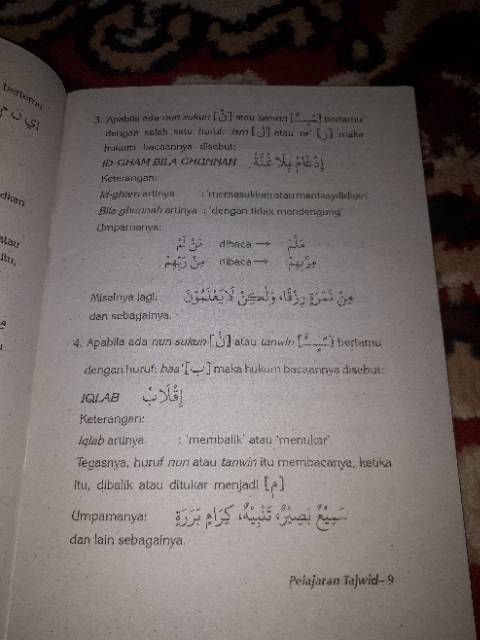 bertemu
اي ن م
dkan
atau
itu,
3. Apabila ada nun sukun [نْ] atau tanwin [ـًـٍـٌ] bertemu
dengan salah satu huruf: lam [ل] atau ra' [ر] maka
hukum bacaannya disebut:
ID-GHAM BILA GHUNNAH إِدْغَامْ بِلَا غُنَّةْ
Keterangan:
Id-gham artinya : 'memasukkan atau mentasydidkan'
Bila ghunnah artinya : 'dengan tidak mendengung'
Umpamanya:
مَنْ لَمْ dibaca → مَلَّمْ
مِنْ رَبِّهِمْ dibaca → مِرَّبِّهِمْ
Misalnya lagi: مِنْ ثَمَرَةٍ رِزْقًا، وَلٰكِنْ لَا يَعْلَمُوْنَ
dan sebagainya.
4. Apabila ada nun sukun [نْ] atau tanwin [ـًـٍـٌ] bertemu
dengan huruf: baa' [ب] maka hukum bacaannya disebut:
IQLAB إِقْلَابْ
Keterangan:
Iqlab artinya : 'membalik' atau 'menukar'
Tegasnya, huruf nun atau tanwin itu membacanya, ketika
itu, dibalik atau ditukar menjadi [م]
Umpamanya: سَمِيْعٌ بَصِيْرٌ، تَنْبِيْهٌ، كِرَامٍ بَرَرَةٍ
dan lain sebagainya.
Pelajaran Tajwid–9